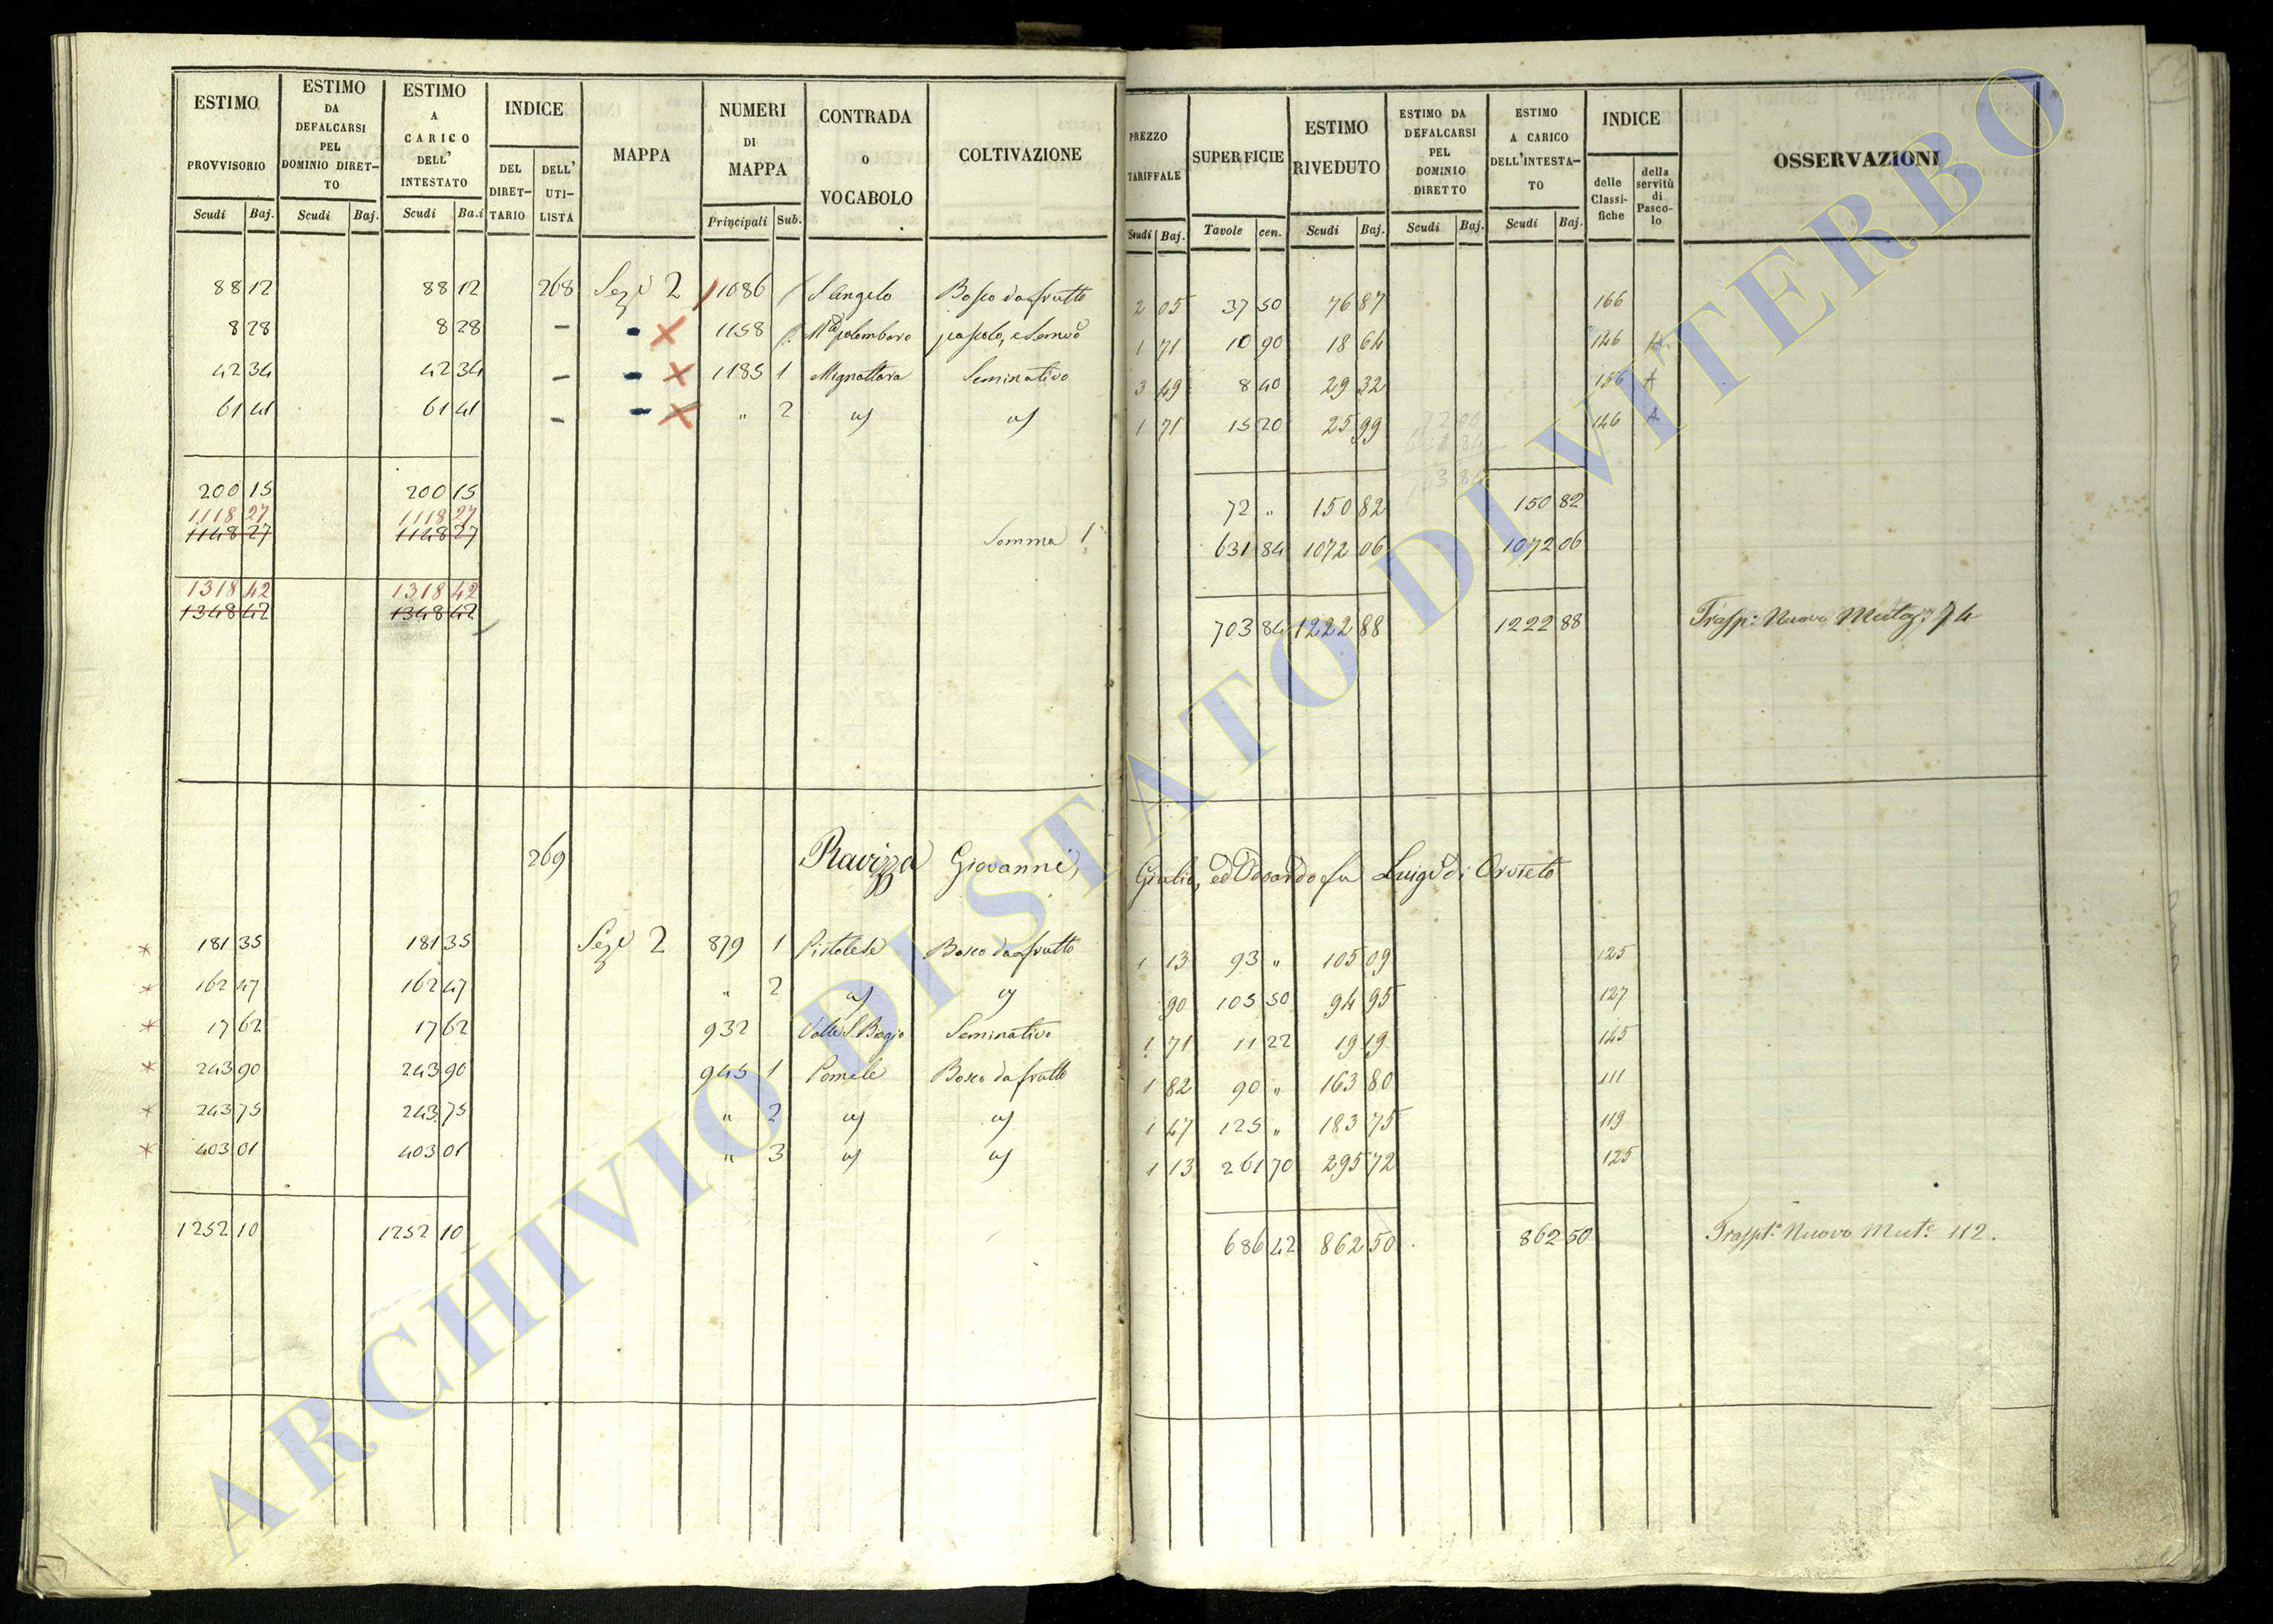 ESTIMO PROVVISORIO | ESTIMO DA DEFALCARSI PEL DOMINIO DIRET-TO | ESTIMO A CARICO DELL' INTESTATO | INDICE | MAPPA | NUMERI DI MAPPA | CONTRADA O VOCABOLO | COLTIVAZIONE | PREZZO TARIFFALE | SUPERFICIE | ESTIMO RIVEDUTO | ESTIMO DA DEFALCARSI PEL DOMINIO DIRETTO | ESTIMO A CARICO DELL'INTESTA-TO | INDICE | OSSERVAZIONI
DEL DIRET-TARIO | DELL' UTI-LISTA | delle Classi-fiche | della servitù di Pasco-lo
Scudi | Baj. | Scudi | Baj. | Scudi | Ba.i | Principali | Sub. | Scudi | Baj. | Tavole | cen. | Scudi | Baj. | Scudi | Baj. | Scudi | Baj.
88 12 | 88 12 | 268 | Sez.e 2 | 1086 | S. Angelo | Bosco da frutto | 2 05 | 37 50 | 76 87 | 166
8 28 | 8 28 | – | – | 1158 | palombaro | pascolo, e Semivo | 1 71 | 10 90 | 18 64 | 146 | A
42 34 | 42 34 | – | – | 1185 | 1 | Mignattara | Seminativo | 3 49 | 8 40 | 29 32 | 136 | A
61 41 | 61 41 | – | – | " | 2 | id | id | 1 71 | 15 20 | 25 99 | 146 | A
72 00
631 84
703 84
200 15 | 200 15 | 72 " | 150 82 | 150 82
1118 27 | 1118 27
1148 27 | 1148 27 | Somma 1 | 631 84 | 1072 06 | 1072 06
1318 42 | 1318 42
1348 42 | 1348 42 | 703 84 | 1222 88 | 1222 88 | Trasp: Nuovo 74
269 | Ravizza Giovanni, Giulio, ed Odoardo fu Luigi di Orvieto
* 181 35 | 181 35 | Sez.e 2 | 879 | 1 | Pistolese | Bosco da frutto | 1 13 | 93 " | 105 09 | 125
* 162 47 | 162 47 | " | 2 | id | id | 90 | 105 50 | 94 95 | 127
* 17 62 | 17 62 | 932 | Valle S. Biagio | Seminativo | 1 71 | 11 22 | 19 19 | 145
* 243 90 | 243 90 | 945 | 1 | Pomele | Bosco da frutto | 1 82 | 90 " | 163 80 | 111
* 243 75 | 243 75 | " | 2 | id | id | 1 47 | 125 " | 183 75 | 119
* 403 01 | 403 01 | " | 3 | id | id | 1 13 | 261 70 | 295 72 | 125
1252 10 | 1252 10 | 686 42 | 862 50 | 862 50 | Traspt.o Nuovo Mut.e 112.
ARCHIVIO DI STATO DI VITERBO